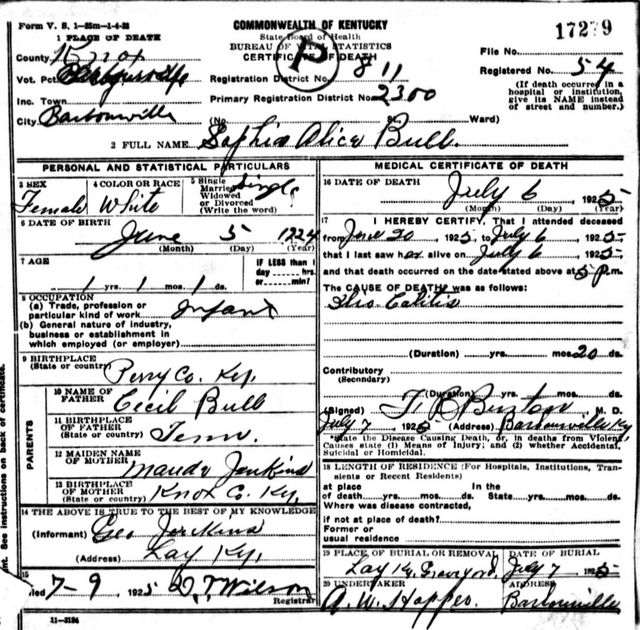 Form V. S. 1—25m—1-4-23
COMMONWEALTH OF KENTUCKY
17279
1 PLACE OF DEATH
State Board of Health
BUREAU OF VITAL STATISTICS
CERTIFICATE OF DEATH
County Knox
File No.
Vot. Pct.
Registration District No. 811
Registered No. 54
Inc. Town
Primary Registration District No. 2300
(If death occurred in a hospital or institution, give its NAME instead of street and number.)
City Barbourville (No. Ward)
2 FULL NAME Sophia Alice Bull.
PERSONAL AND STATISTICAL PARTICULARS
3 SEX Female
4 COLOR OR RACE White
5 Single Married Widowed or Divorced (Write the word) Single
6 DATE OF BIRTH June 5 1924
(Month) (Day) (Year)
7 AGE
1 1 1
IF LESS than 1 day ----- hrs. or ------ min?
8 OCCUPATION
(a) Trade, profession or particular kind of work Infant
(b) General nature of industry, business or establishment in which employed (or employer)
9 BIRTHPLACE (State or country) Perry Co. Ky.
PARENTS
10 NAME OF FATHER Cecil Bull
11 BIRTHPLACE OF FATHER (State or country) Tenn.
12 MAIDEN NAME OF MOTHER Maudy Jenkins
13 BIRTHPLACE OF MOTHER (State or country) Knox C. Ky.
14 THE ABOVE IS TRUE TO THE BEST OF MY KNOWLEDGE
(Informant) Geo Jenkins
(Address) Lay Ky.
15
Filed 7-9 1925 D T Wilson
Registrar
11—3184
MEDICAL CERTIFICATE OF DEATH
16 DATE OF DEATH July 6 1925
(Month) (Day) (Year)
17 I HEREBY CERTIFY, That I attended deceased
from June 20 1925 to July 6 1925
that I last saw her alive on July 6 1925
and that death occurred on the date stated above at 5 P.m.
The CAUSE OF DEATH* was as follows:
Ileo Colitis
(Duration) yrs. mos. 20 ds.
Contributory
(Secondary)
(Duration) yrs. mos. ds.
(Signed) T. R Burton M. D.
July 7 1925 (Address) Barbourville Ky
*State the Disease Causing Death, or, in deaths from Violent Causes state (1) Means of Injury; and (2) whether Accidental, Suicidal or Homicidal.
18 LENGTH OF RESIDENCE (For Hospitals, Institutions, Transients or Recent Residents)
at place of death yrs. mos. ds. In the State yrs. mos. ds.
Where was disease contracted,
if not at place of death?
Former or usual residence
19 PLACE OF BURIAL OR REMOVAL Lay Ky Graveyard.
DATE OF BURIAL July 7 1925
20 UNDERTAKER A. W. Hopper.
ADDRESS Barbourville
See instructions on back of certificate.